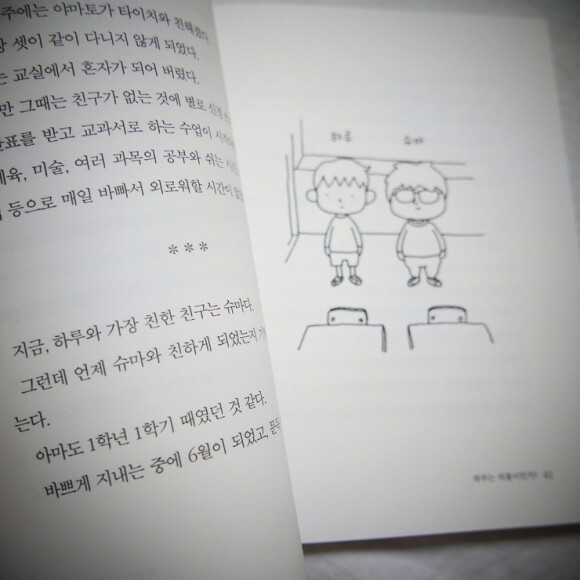 주에는 야마토가 타이치와 친해졌다.
셋이 같이 다니지 않게 되었다.
는 교실에서 혼자가 되어 버렸다.
만 그때는 친구가 없는 것에 별로
표를 받고 교과서로 하는 수업이
육, 미술, 여러 과목의 공부와 쉬는
등으로 매일 바빠서 외로워할 시간이
***
지금, 하루와 가장 친한 친구는 슈마다.
그런데 언제 슈마와 친하게 되었는지
는다.
아마도 1학년 1학기 때였던 것 같다.
바쁘게 지내는 중에 6월이 되었고, 문득
하루
슈마